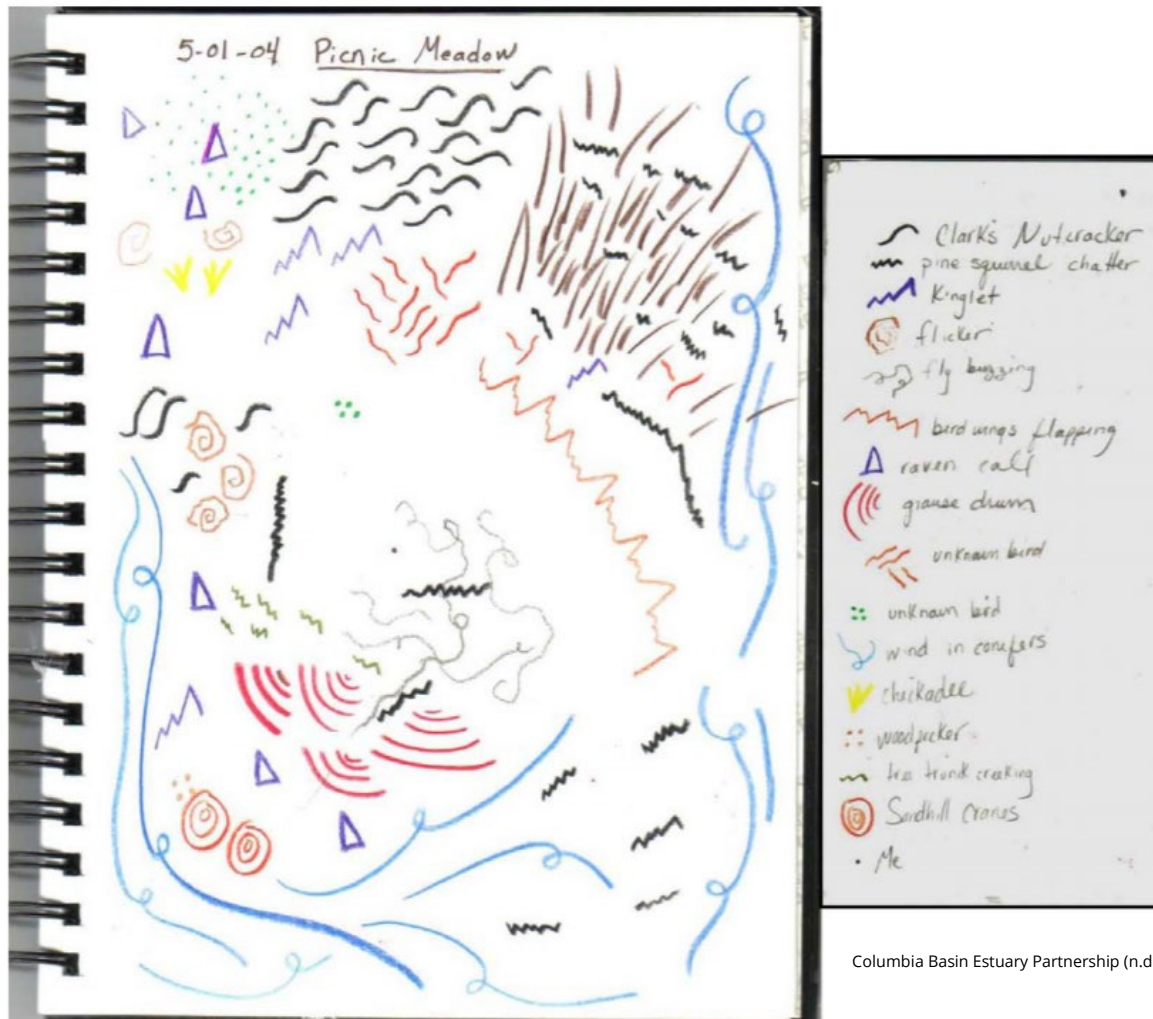 5-01-04 Picnic Meadow
Clark's Nutcracker
pine squirrel chatter
Kinglet
flicker
fly buzzing
bird wings flapping
raven call
grouse drum
unknown bird
unknown bird
wind in conifers
chickadee
woodpecker
tree trunk creaking
Sandhill Cranes
Me
Columbia Basin Estuary Partnership (n.d